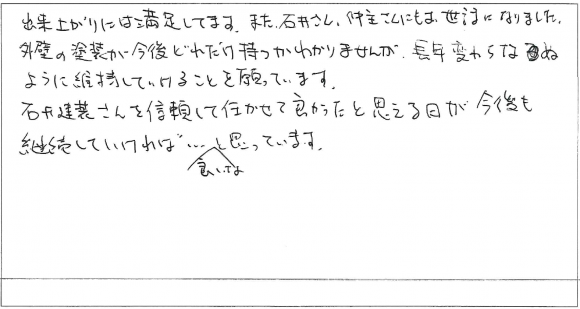 出来上がりには満足してます。また、石井さん、付主さんにもお世話になりました。
外壁の塗装が今後どれだけ持つかわかりませんが、長年変わらな ぬ
ように維持していけることを願っています。
石井建装さんを信頼して任かせて良かったと思える日が今後も
継続していければ…と思っています。
良いな